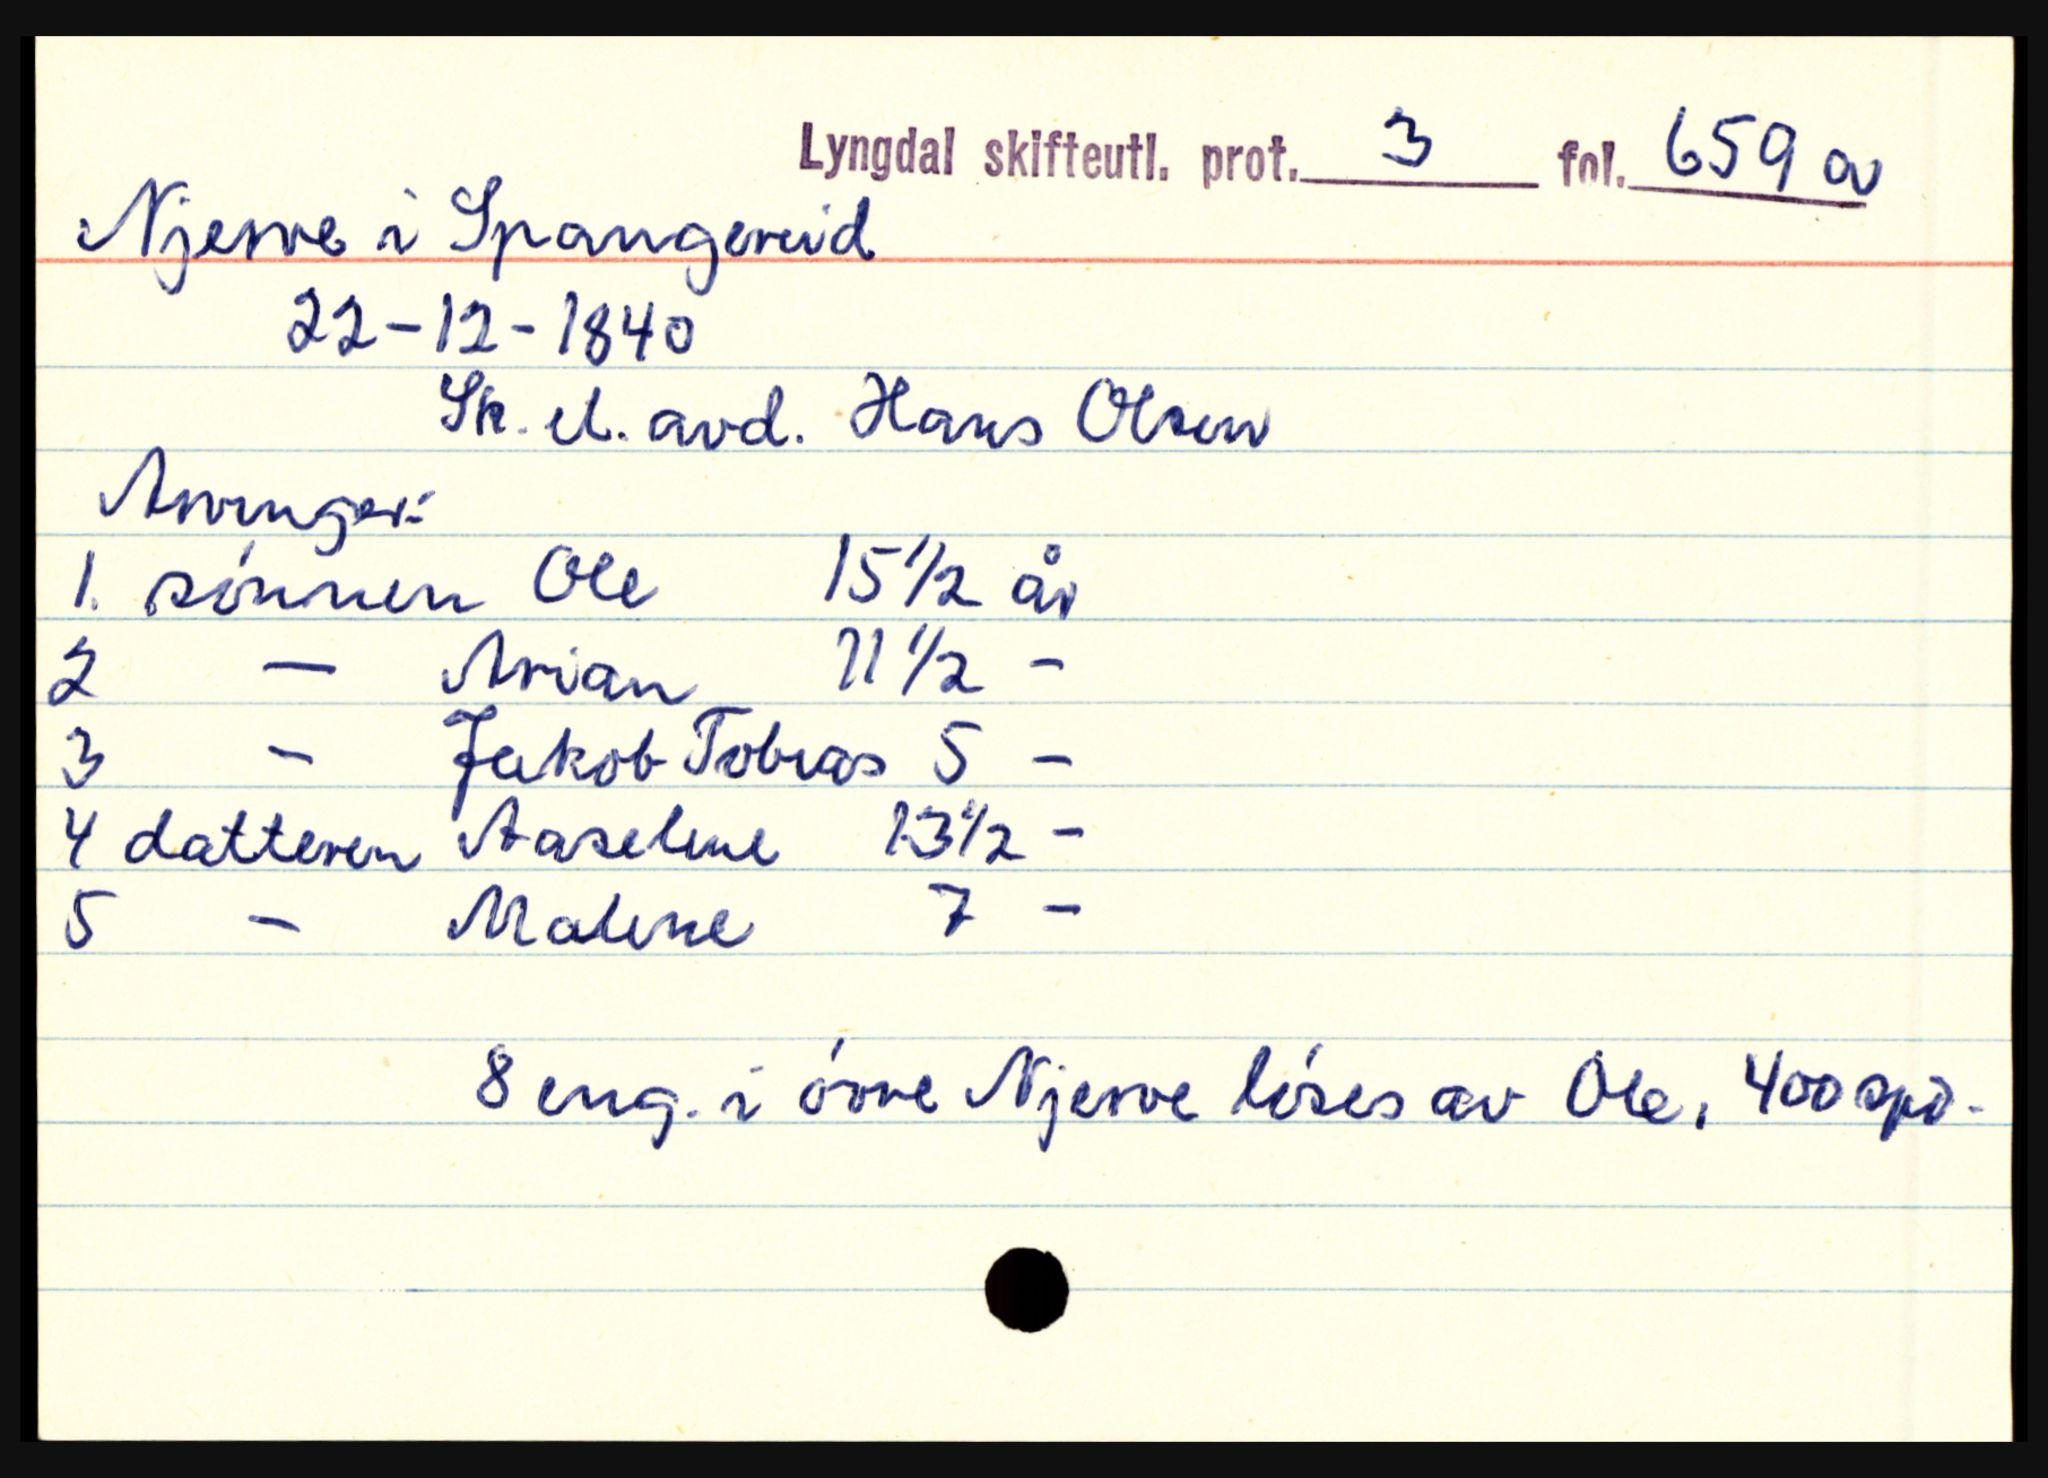 Lyngdal skifteutl. prot. 3 fol. 659 a
Njerve i Spangereid
22-12-1840
Sk. e. avd. Hans Olsen
Arvinger:
1. sónnen Ole 15 1/2 år
2 — Arian 11 1/2 -
3 - Jakob Tobias 5 -
4 datteren Aaselene 13 1/2 -
5 - Malene 7 -
8 eng. i óvre Njerve lóses av Ole, 400 spd.